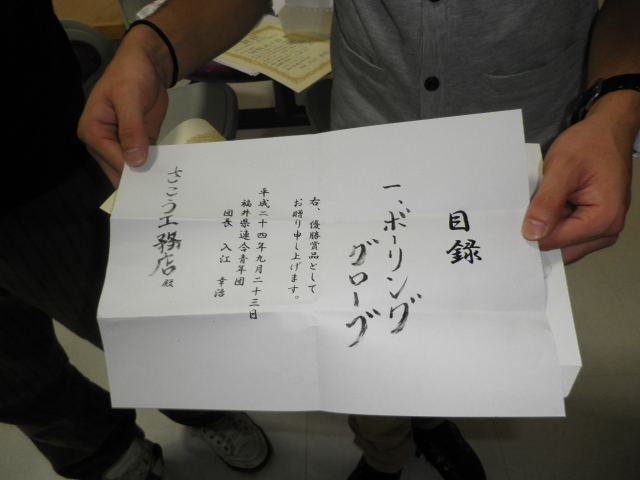 目録
一、ボーリング
グローブ
右、優勝賞品として
お贈り申し上げます。
平成二十四年九月二十三日
福井県連合青年団
団長 入江 幸治
さこう工務店殿